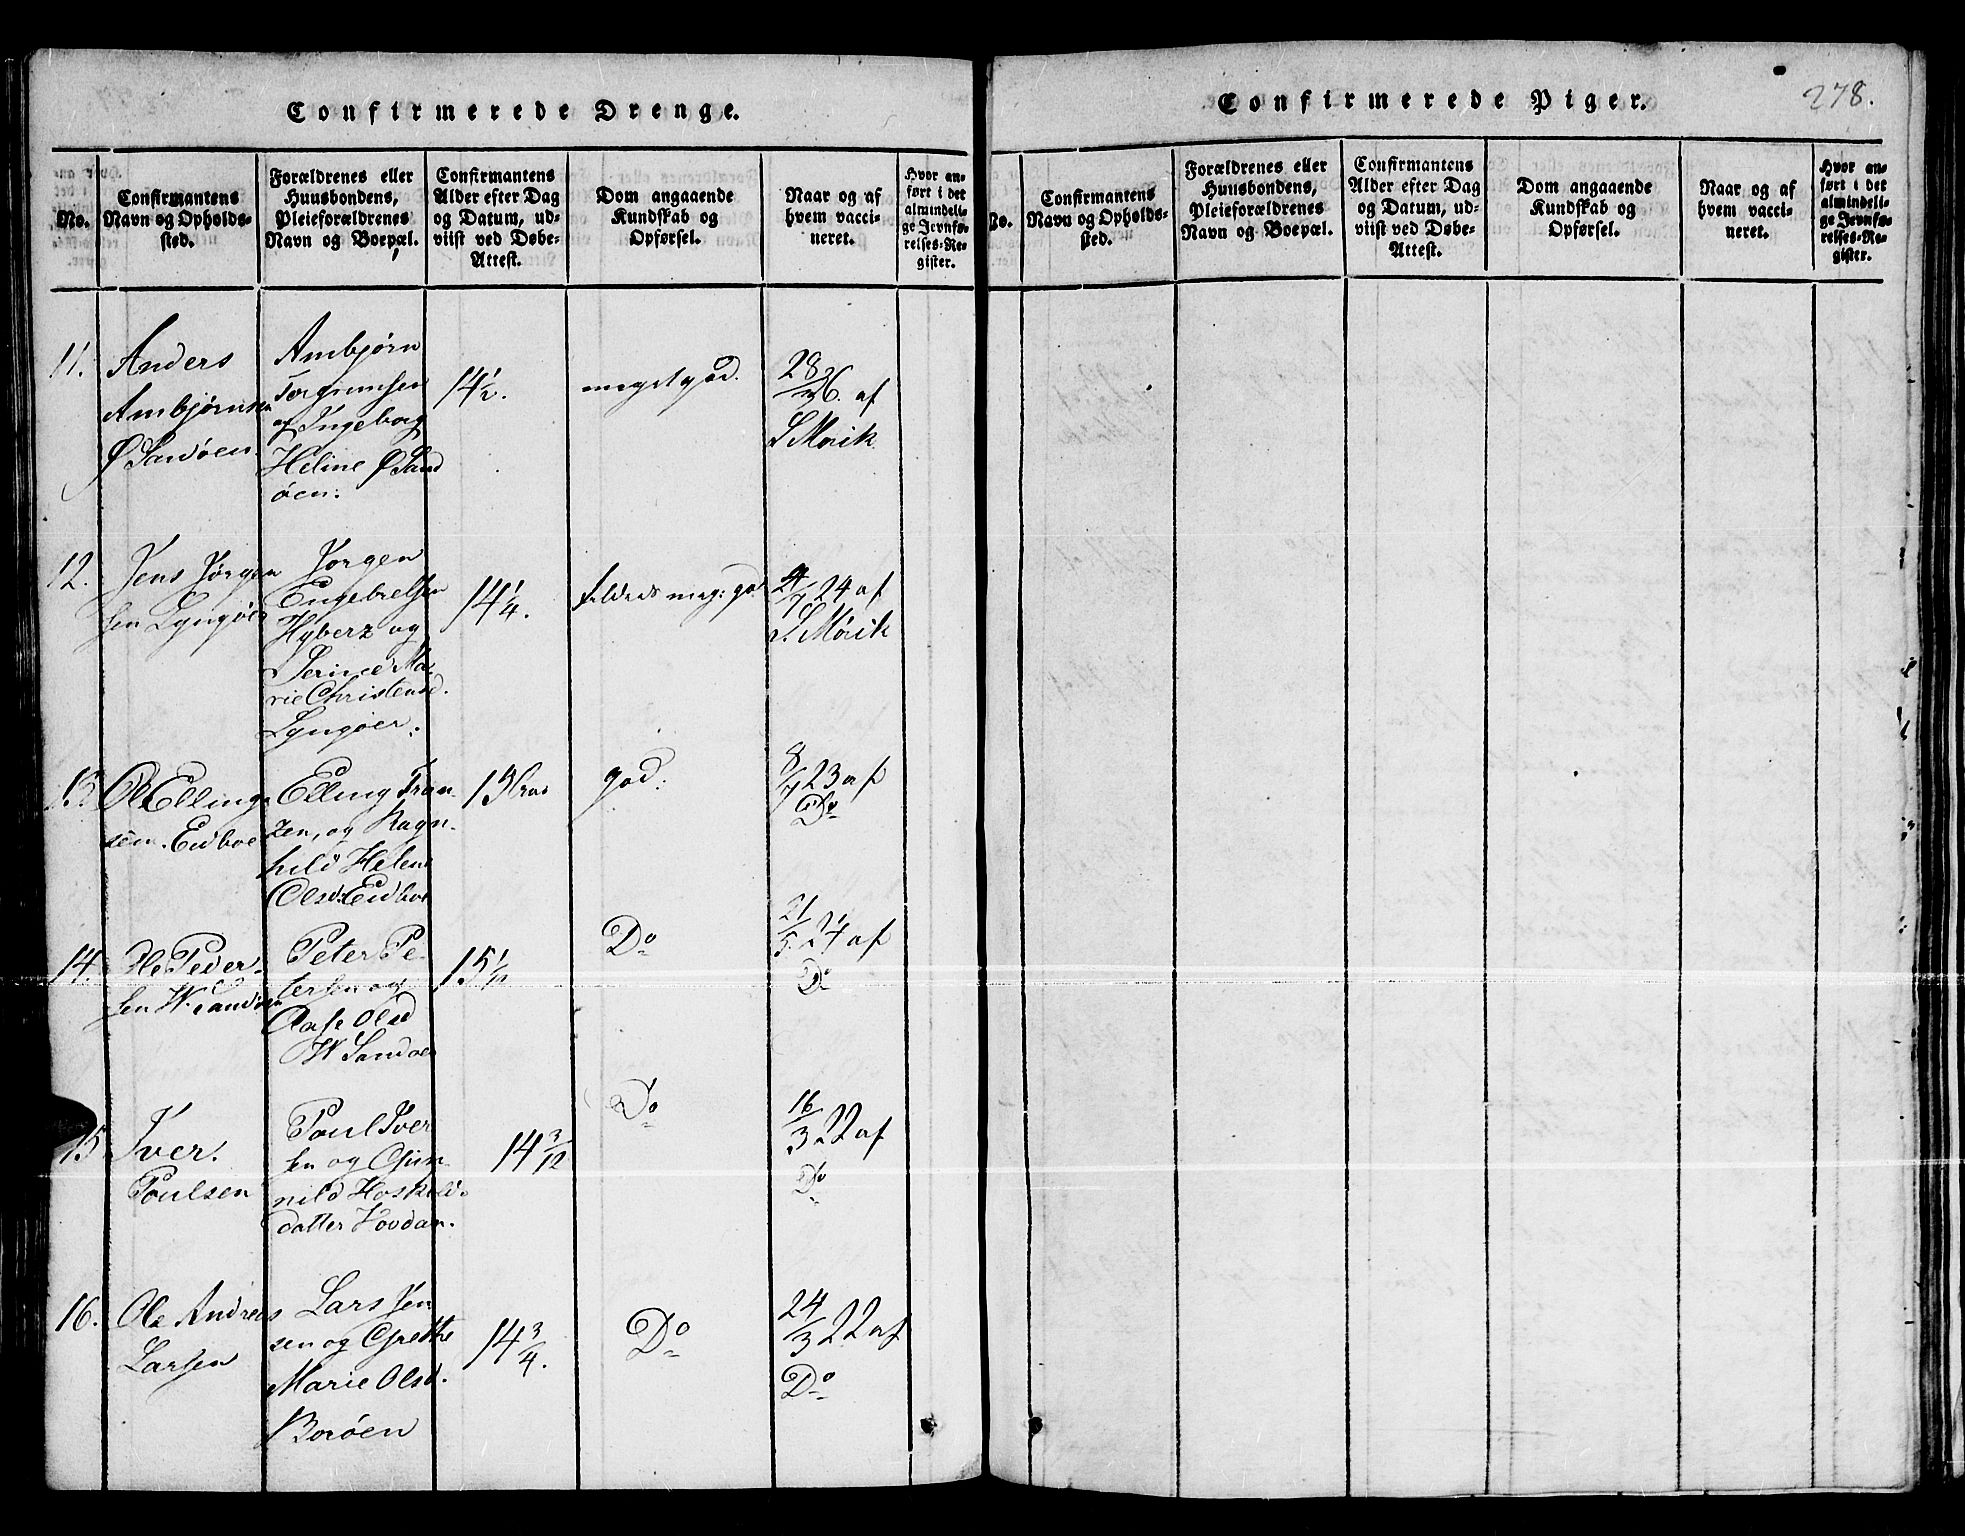 Confirmerede Drenge.
No.
Confirmantens
Navn og Opholds-
sted.
Forældrenes eller
Huusbondens,
Pleieforældrenes
Navn og Boepæl.
Confirmantens
Alder efter Dag
og Datum, ud-
viist ved Døbe-
Attest.
Dom angaaende
Kundskab og
Opførsel.
Naar og af
hvem vacci-
neret.
Hvor an-
ført i det
almindeli-
ge Jevnfø-
relses-Re-
gister.
11.
Anders
Ambjørnsen
Ø Sandøen.
Ambjørn
og Ingeborg
Heline Ø Sand
øen.
14 1/2.
meget god.
28/ 26. af
S Mørik
12.
Jens Jørgen
sen Lyngøer
Jorgen
Engebretsen
Hyberz og
Serine Ma-
rie Christensd.
Lyngøer.
14 1/4.
mag: god
4/7 24 af
S. Mørik
13
Ole Elling
sen. Eidboe
Elling Fran-
zen, og Ragn-
hild Helene
Olsd: Eidboe
god.
8/7 23 af
Do
14.
Ole Peder-
sen W. Sandøen
Peter Pe-
tersen og
Aase Olsd
W Sandøen
15 1/12
Do
21/5 24 af
Do
15
Iver.
Poulsen
Poul Iver
sen og Gun-
nild Hoskolds-
datter Hovdan.
14 3/12
Do
16/3 22 af
Do
16.
Ole Andreas
Larsen
Lars Jen
sen og Grethe
Marie Olsd.
Borøen
14 3/4.
Do
24/3 22 af
Do
Confirmerede Piger.
278.
No.
Confirmantens
Navn og Opholds-
sted.
Forældrenes eller
Huusbondens,
Pleieforældrenes
Navn og Boepæl.
Confirmantens
Alder efter Dag
og Datum, ud-
viist ved Døbe-
Attest.
Dom angaaende
Kundskab og
Opførsel.
Naar og af
hvem vacci-
neret.
Hvor an-
ført i det
almindeli-
ge Jevnfø-
relses-Re-
gister.